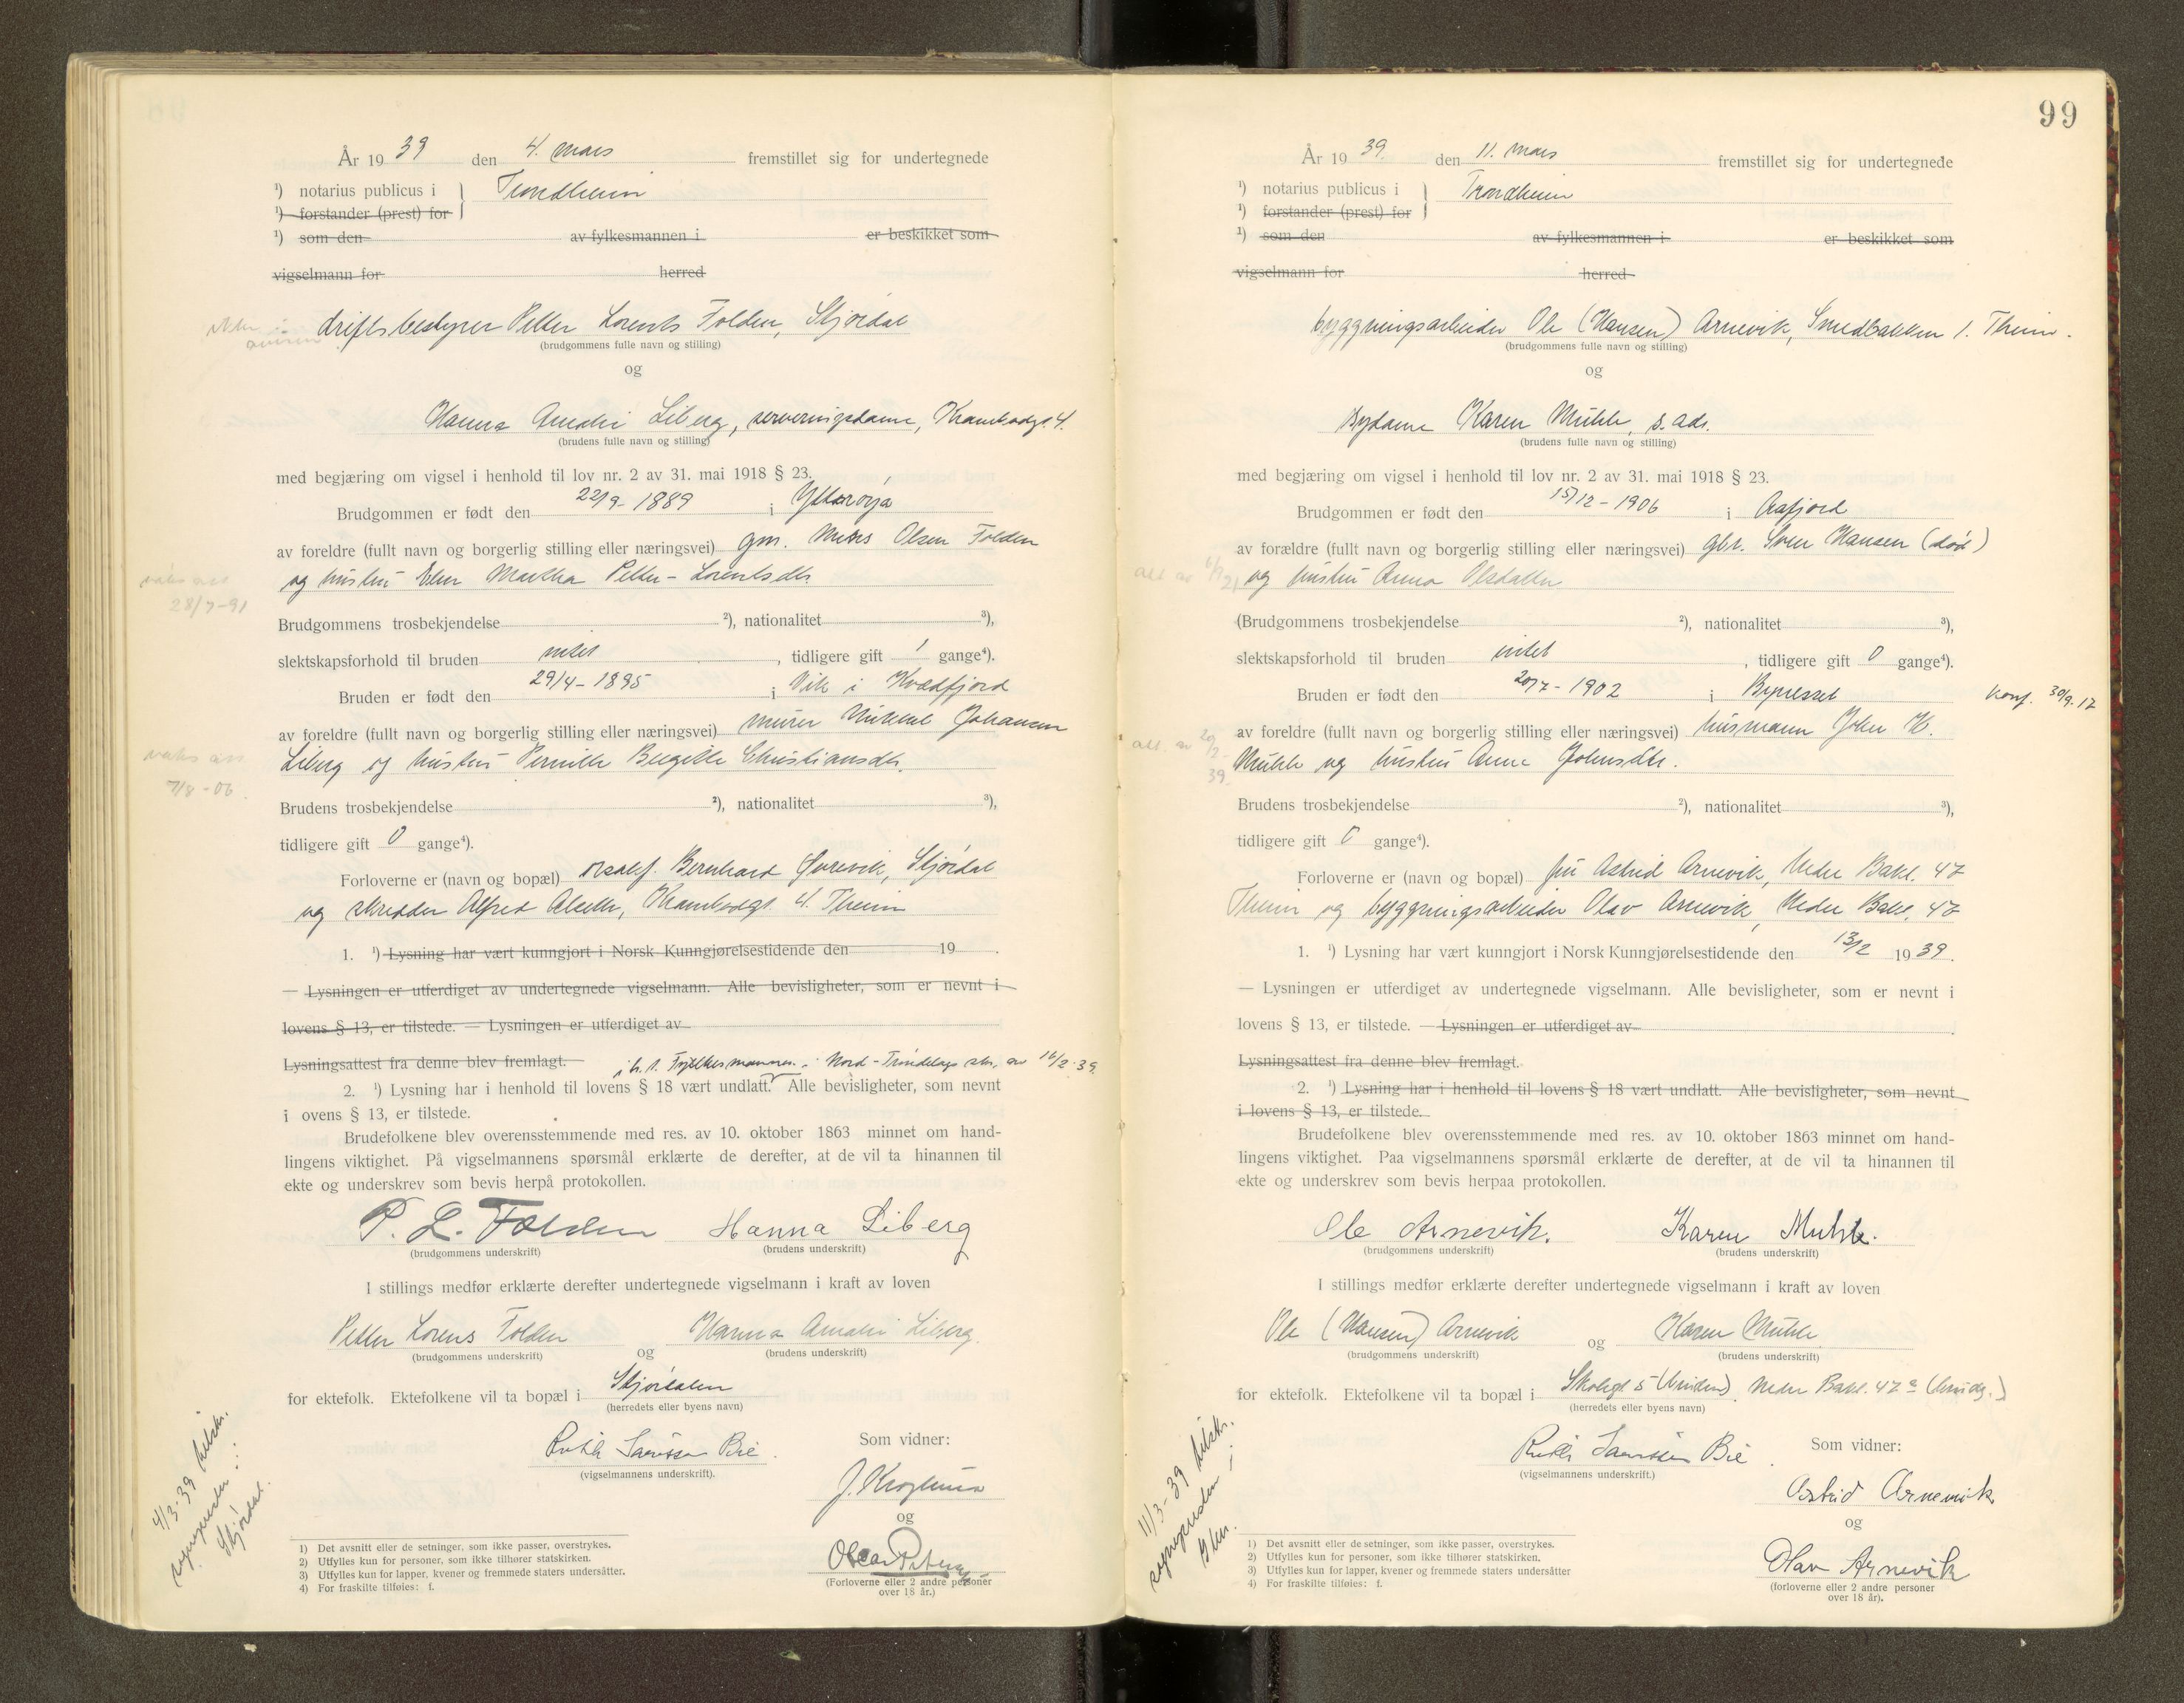 År 19 39 den 4. mars fremstillet sig for undertegnede
¹) notarius publicus i } Trondheim
¹) forstander (prest) for
¹) som den av fylkesmannen i er beskikket som
vigselmann for herred
driftsbestyrer Petter Lorents Folden, Stjørdal
(brudgommens fulle navn og stilling)
og
Hanna Amalie Liberg, serveringsdame, Krambodgt. 4.
(brudens fulle navn og stilling)
med begjæring om vigsel i henhold til lov nr. 2 av 31. mai 1918 § 23.
Brudgommen er født den 22/9-1889 i Ytterøya
av foreldre (fullt navn og borgerlig stilling eller næringsvei) gm. Olsen Folden
og hustru Martha Petter-Lorentsdtr.
vaks att
28/7-91
Brudgommens trosbekjendelse ²), nationalitet ³),
slektskapsforhold til bruden intet, tidligere gift 1 gange⁴).
Bruden er født den 29/4-1895 i Vik i Kvædfjord
av foreldre (fullt navn og borgerlig stilling eller næringsvei) murer Mikkal Johansen
Liberg og hustru Pernille Birgitte Christiansdtr.
vaks att
7/8-06
Brudens trosbekjendelse ²), nationalitet ³),
tidligere gift 0 gange⁴).
Forloverne er (navn og bopæl) Bernhard Stjørdal
og skredder Alfred Krambodgt. 4. Theim
1. ¹) Lysning har vært kunngjort i Norsk Kunngjørelsestidende den 19 .
— Lysningen er utferdiget av undertegnede vigselmann. Alle bevisligheter, som er nevnt i
lovens § 13, er tilstede. — Lysningen er utferdiget av
Lysningsattest fra denne blev fremlagt. i h. t. Fylkesmannen i Nord-Trøndelags skr. av 16/2-39.
2. ¹) Lysning har i henhold til lovens § 18 vært undlatt. Alle bevisligheter, som nevnt
i ovens § 13, er tilstede.
Brudefolkene blev overensstemmende med res. av 10. oktober 1863 minnet om hand-
lingens viktighet. På vigselmannens spørsmål erklærte de derefter, at de vil ta hinannen til
ekte og underskrev som bevis herpå protokollen.
P. L. Folden Hanna Liberg
(brudgommens underskrift) (brudens underskrift)
I stillings medfør erklærte derefter undertegnede vigselmann i kraft av loven
Petter Lorens Folden og Hanna Amalie Liberg.
(brudgommens underskrift) (brudens underskrift)
for ektefolk. Ektefolkene vil ta bopæl i Stjørdalen
(herredets eller byens navn)
Som vidner:
(vigselmannens underskrift).
og
(Forloverne eller 2 andre personer
over 18 år.)
4/3-39 tilskr.
sognepresten i
Stjørdal.
1) Det avsnitt eller de setninger, som ikke passer, overstrykes.
2) Utfylles kun for personer, som ikke tilhører statskirken.
3) Utfylles kun for lapper, kvener og fremmede staters undersåtter.
4) For fraskilte tilføies: f.
99
År 19 39. den 11. mars fremstillet sig for undertegnede
¹) notarius publicus i } Trondheim
¹) forstander (prest) for
¹) som den av fylkesmannen i er beskikket som
vigselmann for herred
byggningsarbeider Ole (Hansen) Arnevik, Smedbakken 1. Theim.
(brudgommens fulle navn og stilling)
og
Sydame Karen Muhle, s. ads.
(brudens fulle navn og stilling)
med begjæring om vigsel i henhold til lov nr. 2 av 31. mai 1918 § 23.
Brudgommen er født den 15/12-1906 i Aafjord
av forældre (fullt navn og borgerlig stilling eller næringsvei) gbr. Sven Hansen (død)
og hustru Anna Olsdatter
(Brudgommens trosbekjendelse ²), nationalitet ³),
slektskapsforhold til bruden intet, tidligere gift 0 gange⁴).
Bruden er født den 20/7-1902 i Bynesset konf. 30/9.17
av foreldre (fullt navn og borgerlig stilling eller næringsvei) husmann John K.
Muhle og hustru Anne Johnsdtr.
Brudens trosbekjendelse ²), nationalitet ³),
tidligere gift 0 gange⁴).
Forloverne er (navn og bopæl) fru Astrid Arnevik, Nedre Bakl. 47
Theim og byggningsarbeider Olav Arnevik, Nedre Bakl. 47
1. ¹) Lysning har vært kunngjort i Norsk Kunngjørelsestidende den 13/2 1939.
— Lysningen er utferdiget av undertegnede vigselmann. Alle bevisligheter, som er nevnt i
lovens § 13, er tilstede. — Lysningen er utferdiget av .
Lysningsattest fra denne blev fremlagt.
2. ¹) Lysning har i henhold til lovens § 18 vært undlatt. Alle bevisligheter, som nevnt
i lovens § 13, er tilstede.
Brudefolkene blev overensstemmende med res. av 10. oktober 1863 minnet om hand-
lingens viktighet. Paa vigselmannens spørsmål erklærte de derefter, at de vil ta hinannen til
ekte og underskrev som bevis herpaa protokollen.
Ole Arnevik. Karen Muhle.
(brudgommens underskrift) (brudens underskrift)
I stillings medfør erklærte derefter undertegnede vigselmann i kraft av loven
Ole (Hansen) Arnevik og Karen Muhle
(brudgommens underskrift) (brudens underskrift)
for ektefolk. Ektefolkene vil ta bopæl i Skolegt. 5 Nedre Bakl. 47
(herredets eller byens navn)
Som vidner:
(vigselmannens underskrift.)
Astrid Arnevik
og
Olav Arnevik
(forloverne eller 2 andre personer
over 18 år).
11/3-39 tilskr.
sognepresten i
1) Det avsnitt eller de setninger, som ikke passer, overstrykes.
2) Utfylles kun for personer, som ikke tilhører statskirken.
3) Utfylles kun for lapper, kvener og fremmede staters undersåtter
4) For fraskilte tilføies: f.